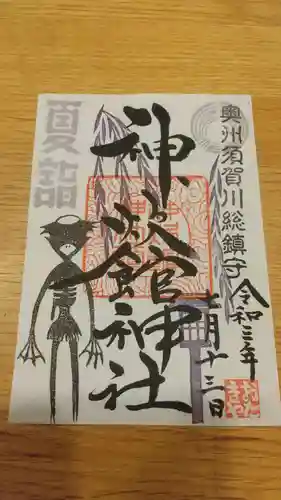 奥州須賀川総鎮守
令和三年
七月十三日
神炊館神社
夏詣